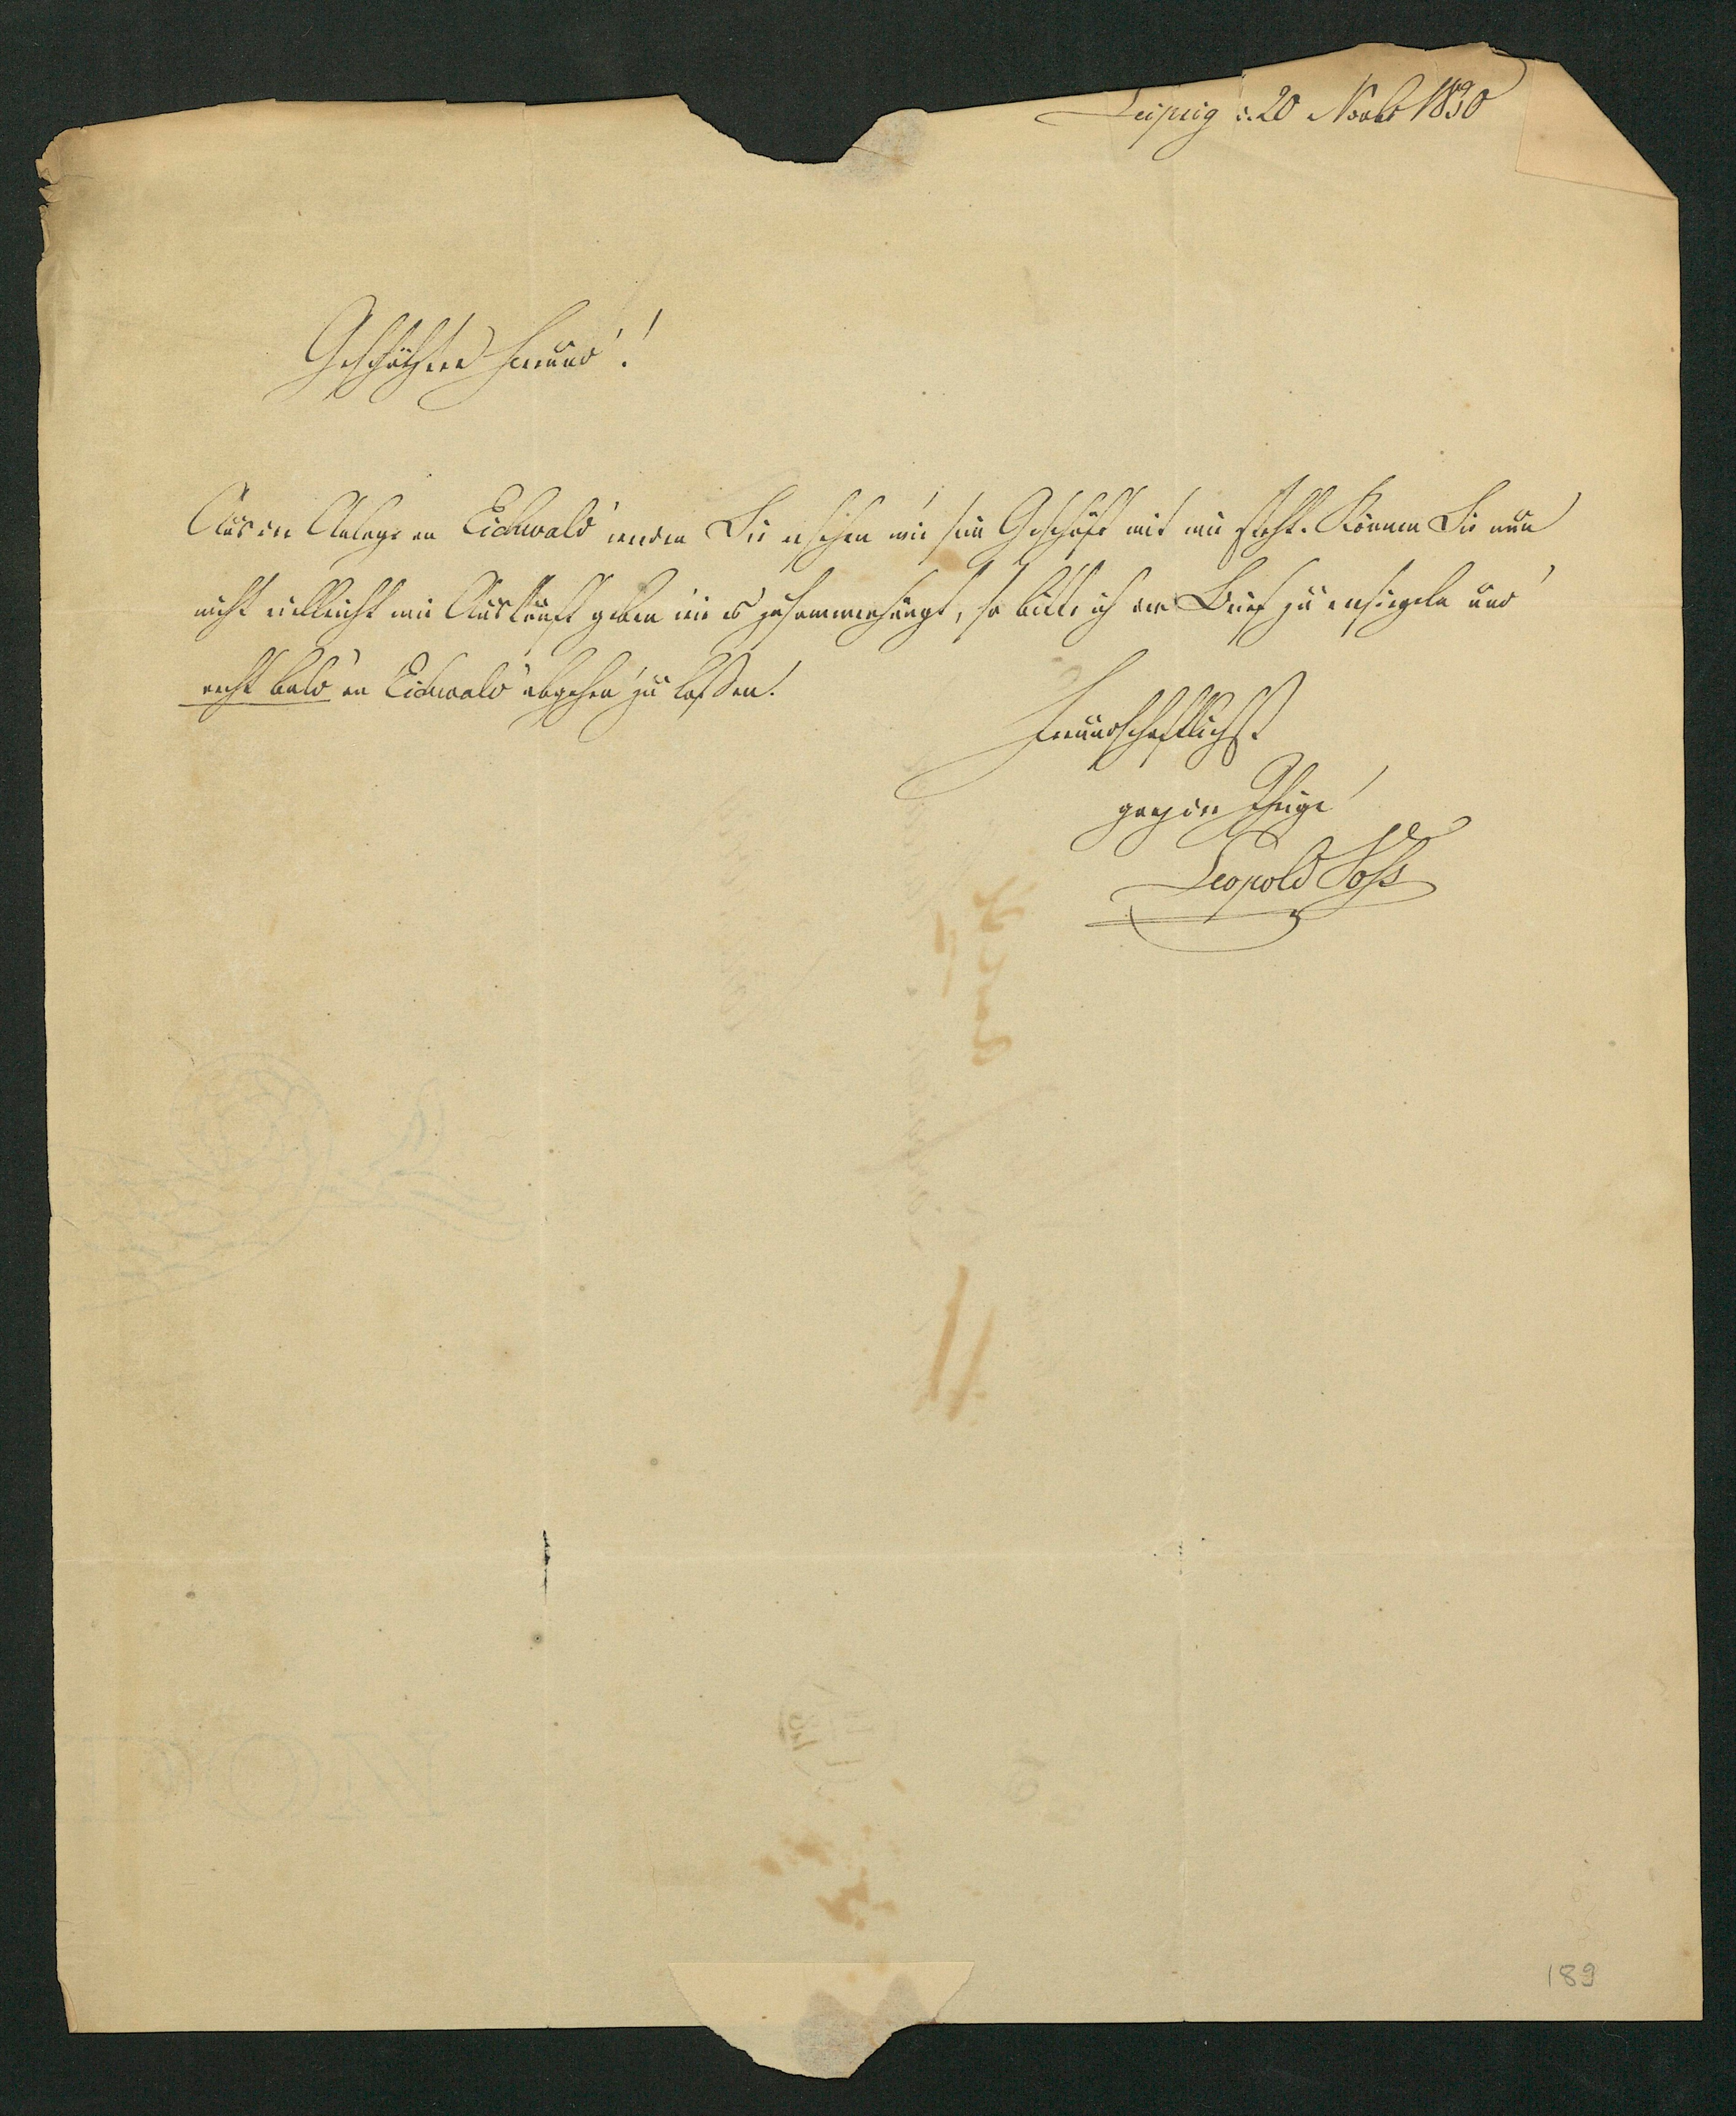 Leipzig d. 20 Novbr 1830
Geschätzter Freund!
Aus der Anlage an Eichwald werden Sie ersehen wie sein Geschäft mit mir steht. Können Sie nun
nicht vielleicht mir Auskunft geben wie es zusammenhängt, so bitte ich den Brief zu versiegeln und
recht bald an Eichwald abgehen zu lassen.
Freundschaftlichst
ganz der Ihrige
Leopold Voß
189